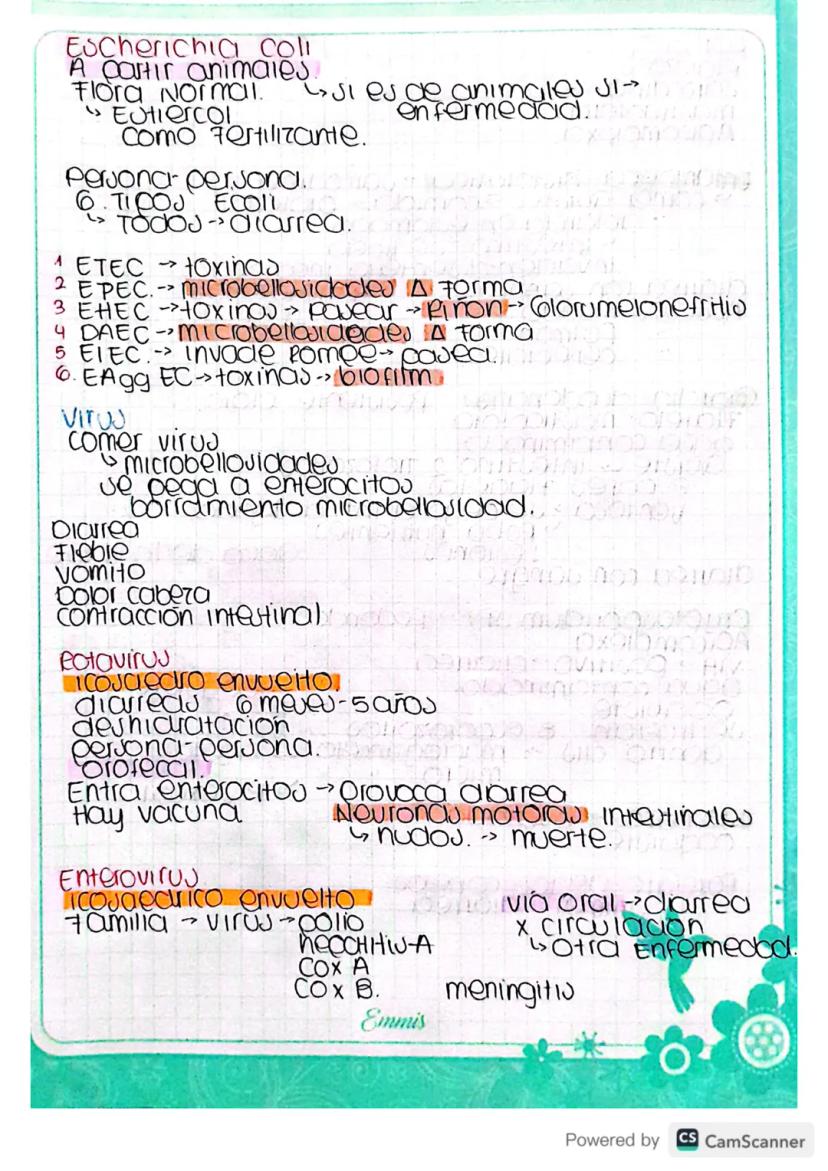 Escherichia coli
A partir animales.
Flora Normal. ↳ si es de animales si →
↳ Estiercol enfermedad.
como fertilizante.
persona-persona.
6 Tipos Ecoli
↳ Todos → diarrea.
1 ETEC → toxinas
2 EPEC. → microbellosidades Δ forma
3 EHEC → toxinas → pasear → Riñon → Glorumelonefritis
4 DAEC → microbellosidades Δ forma
5 EIEC. → invade rompe → pasea.
6. EAgg EC → toxinas → biofilm.
Virus
comer virus
↳ microbellosidades
se pega a enterocitos
borramiento microbellosidad.
Diarrea
Fiebre
vomito
Dolor cabeza
contracción intestinal
Rotavirus
icosaedro envuelto.
diarreas 6 meses-5 años
deshidratación
persona-persona.
orofecal.
Entra enterocitos → provoca diarrea
Hay vacuna Neuronas motoras intestinales
↳ nudos. → muerte.
Enterovirus
icosaedrico envuelto via oral → diarrea
familia → virus → polio x circulación
hepatitis-A ↳ otra Enfermedad.
Cox A
Cox B. meningitis
Emmis
Powered by CS CamScanner